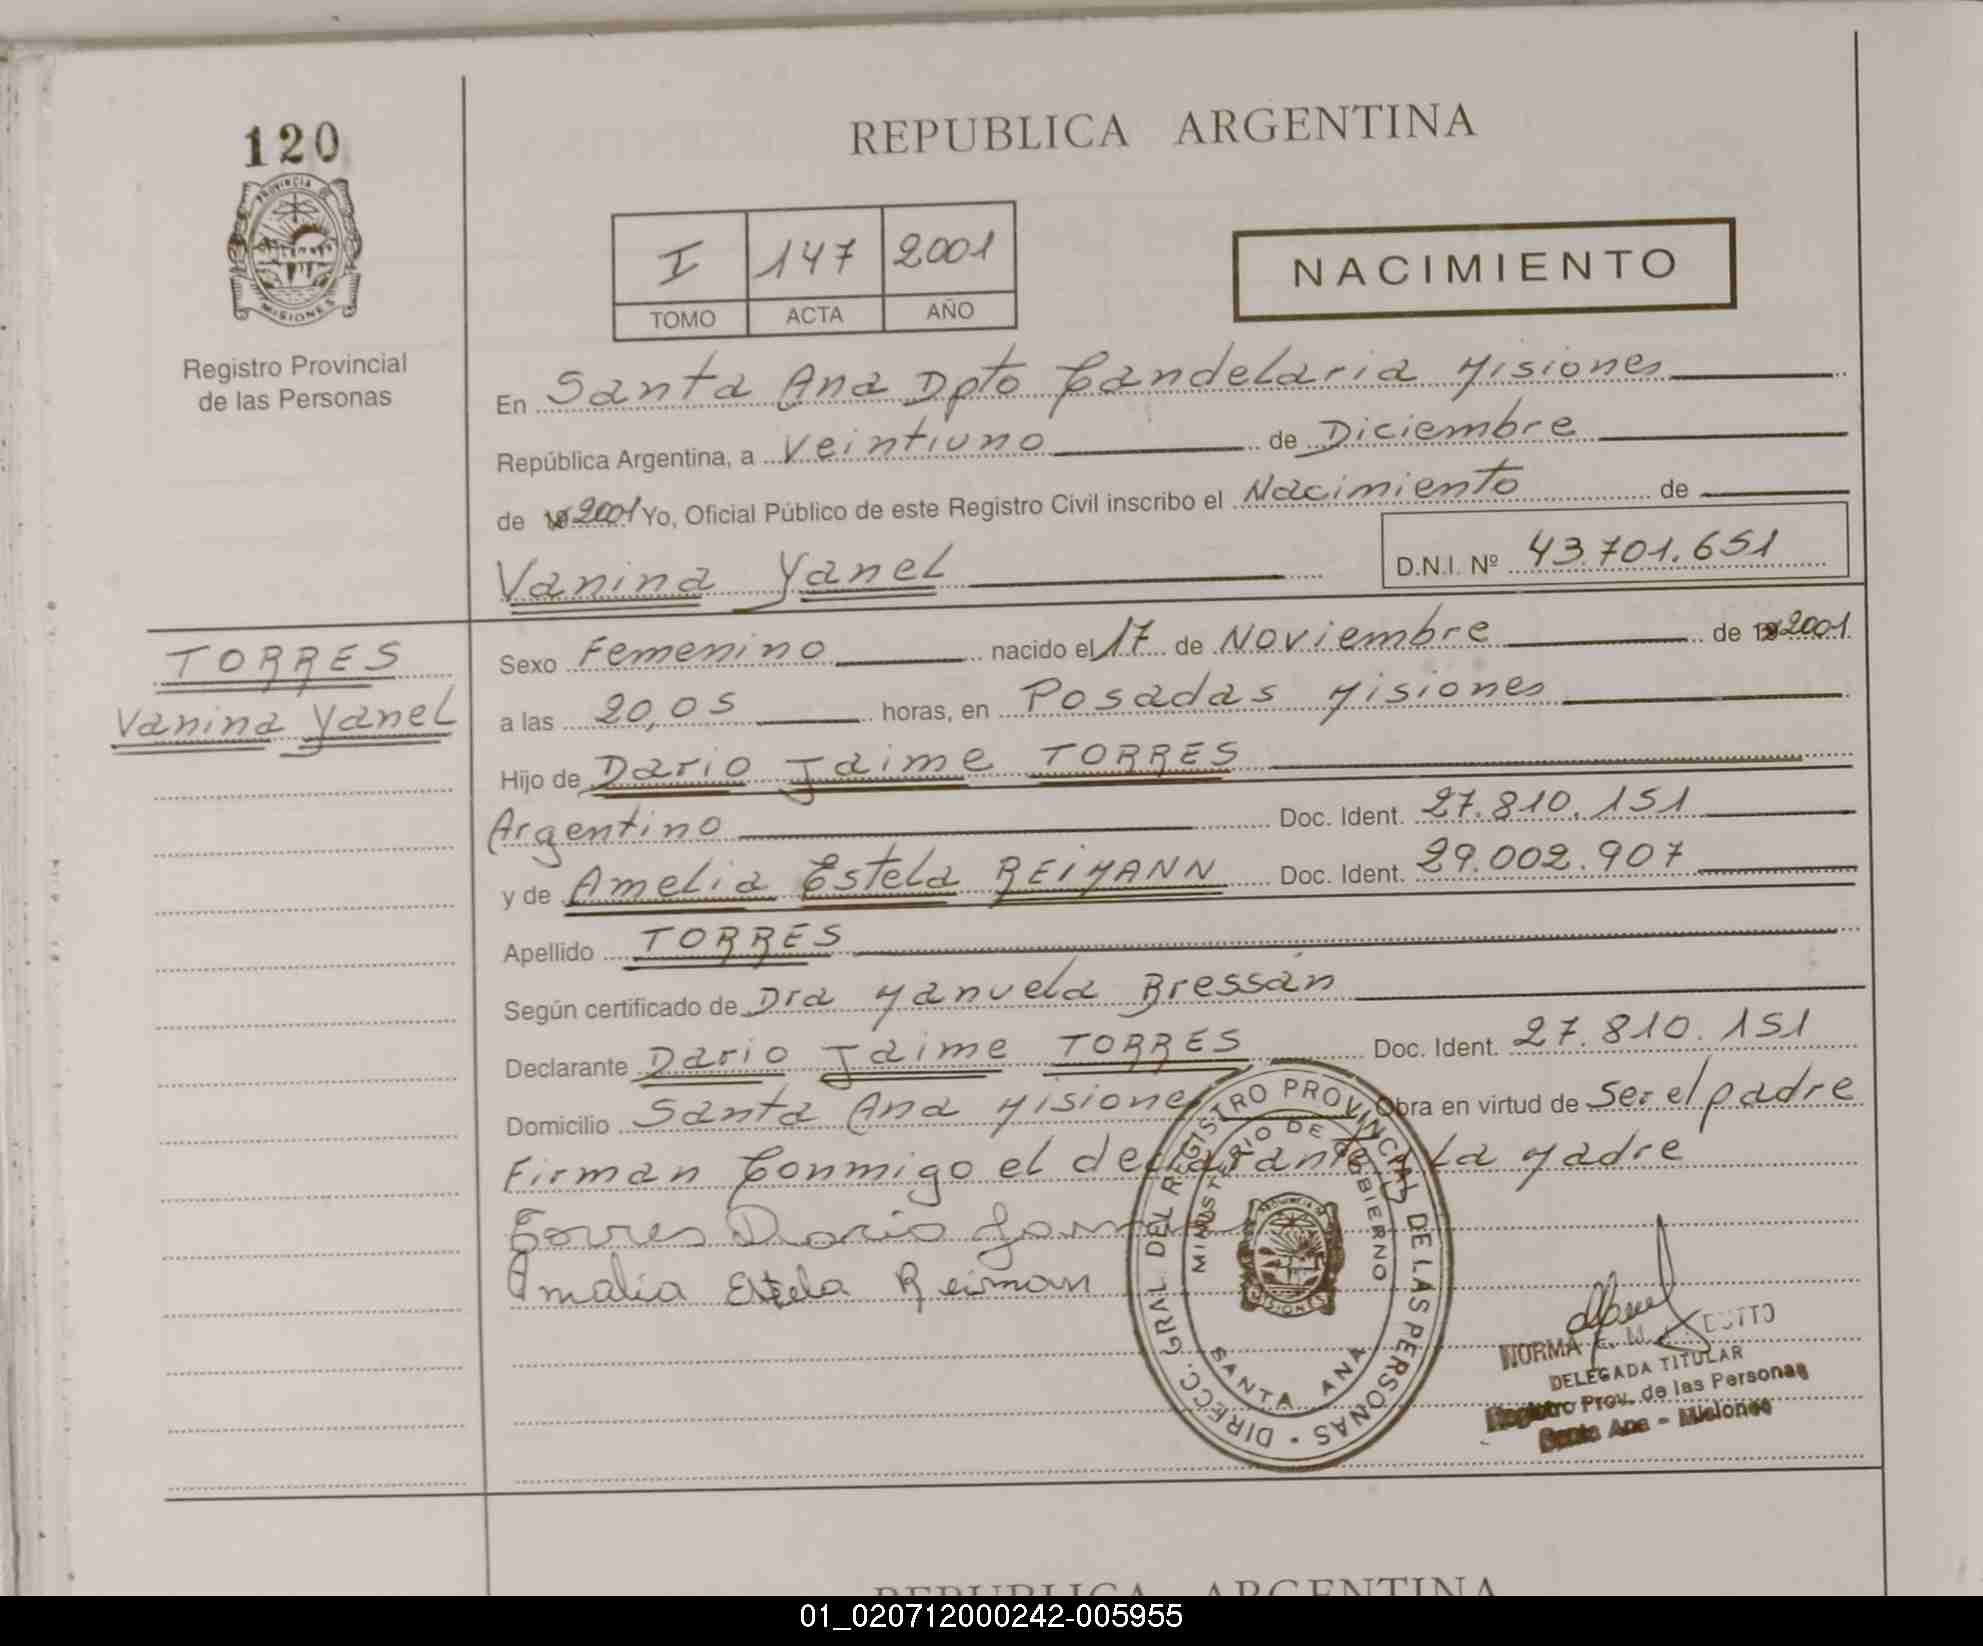 120
PROVINCIA DE
MISIONES
Registro Provincial
de las Personas
REPUBLICA ARGENTINA
I 147 2001
TOMO ACTA AÑO
NACIMIENTO
En Santa Ana Dpto Candelaria Misiones
República Argentina, a Veintiuno de Diciembre
de 19 2001 Yo, Oficial Público de este Registro Civil inscribo el Nacimiento de
Vanina Yanel D.N.I. Nº 43.701.651
TORRES
Vanina Yanel
Sexo Femenino nacido el 17 de Noviembre de 19 2001
a las 20,05 horas, en Posadas Misiones
Hijo de Dario Jaime TORRES
Argentino Doc. Ident. 27.810.151
y de Amelia Estela REIMANN Doc. Ident. 29.002.907
Apellido TORRES
Según certificado de Dra Manuela Bressán
Declarante Dario Jaime TORRES Doc. Ident. 27.810.151
Domicilio Santa Ana Misiones Obra en virtud de Ser el padre
Firman Conmigo el declarante y La Madre
Torres Dario
Amalia Estela Reiman
DIRECC. GRAL DEL REGISTRO PROVINCIAL DE LAS PERSONAS
MINISTERIO DE GOBIERNO
MISIONES
SANTA ANA
NORMA
DELEGADA TITULAR
Registro Prov. de las Personas
Santa Ana - Misiones
REPUBLICA ARGENTINA
01_020712000242-005955